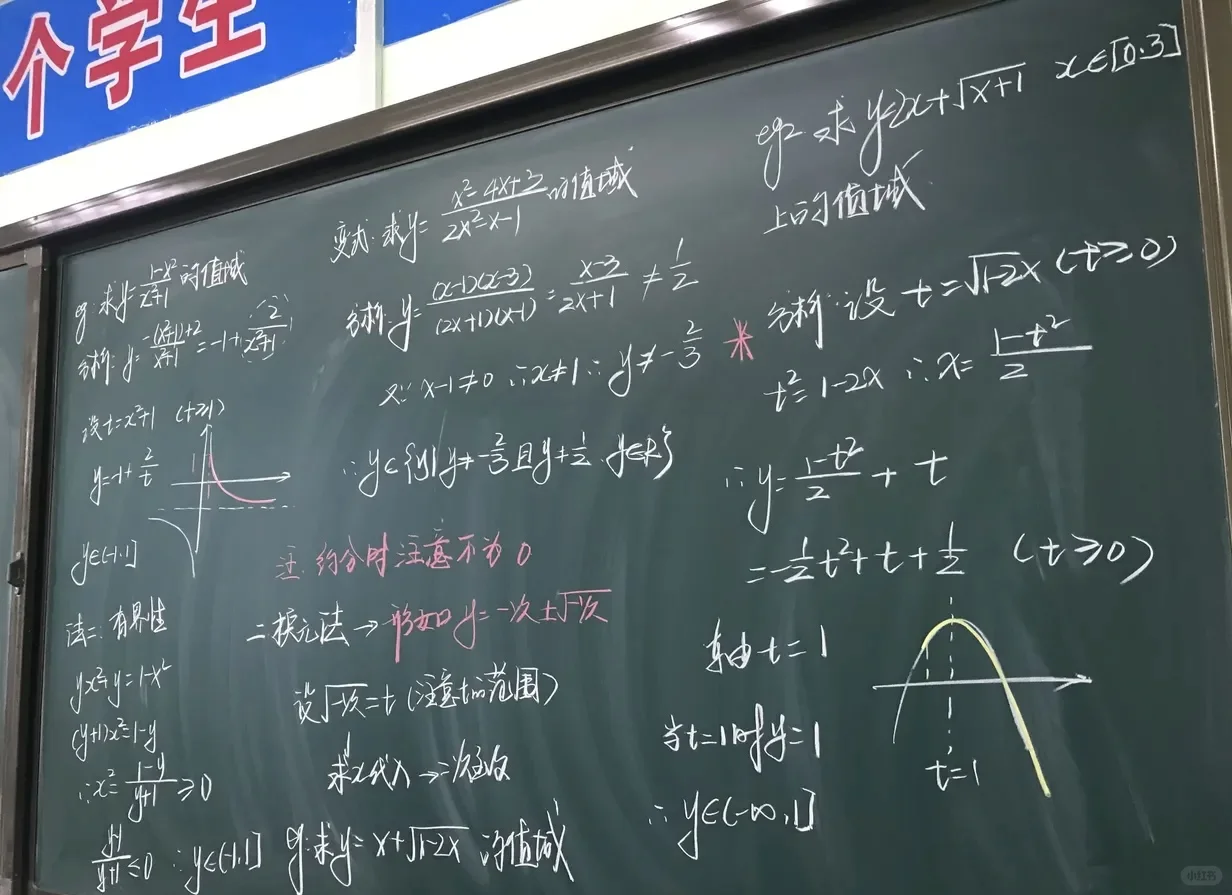 个学生
eg: 求y=\frac{1-x²}{x²+1}的值域
分析: y=\frac{-(x²+1)+2}{x²+1}=-1+\frac{2}{x²+1}
设t=x²+1 (t≥1)
y=-1+\frac{2}{t}
y∈(-1,1]
法二: 有界性
yx²+y=1-x²
(y+1)x²=1-y
∴x²=\frac{1-y}{y+1}≥0
\frac{y-1}{y+1}≤0 ∴y∈(-1,1]
变式: 求y=\frac{x²-4x+3}{2x²-x-1}的值域
分析: y=\frac{(x-1)(x-3)}{(2x+1)(x-1)}=\frac{x-3}{2x+1}≠\frac{1}{2}
又∵x-1≠0 ∴x≠1 ∴y≠-\frac{2}{3} *
∴y∈{y|y≠-\frac{2}{3}且y≠\frac{1}{2}, y∈R}
注: 约分时注意不为0
二换元法→形如y=一次±√一次
设√一次=t(注意t的范围)
求x代入→二次函数
eg: 求y=x+√1-2x 的值域
eg2 求y=2x+√x+1 x∈[0,3]
上的值域
分析: 设t=√1-2x (t≥0)
t²=1-2x ∴x=\frac{1-t²}{2}
∴y=\frac{1-t²}{2}+t
=-\frac{1}{2}t²+t+\frac{1}{2} (t≥0)
轴t=1
当t=1时y=1
t=1
∴y∈(-∞,1]
小红书